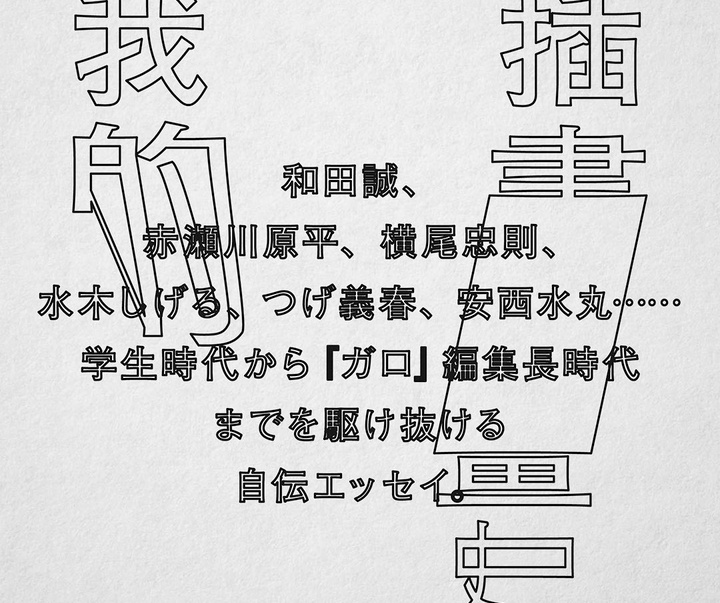 我的
插畫史
和田誠、
赤瀬川原平、横尾忠則、
水木しげる、つげ義春、安西水丸……
学生時代から『ガロ』編集長時代
までを駆け抜ける
自伝エッセイ。